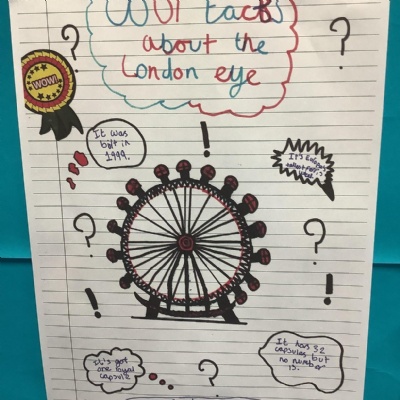 WOW facts
about the
London eye
WOW!
It was
bilt in
1999.
It's Europe
tallest
It has 32
capsules but
no number
13.
it's got
one loyal
capsule